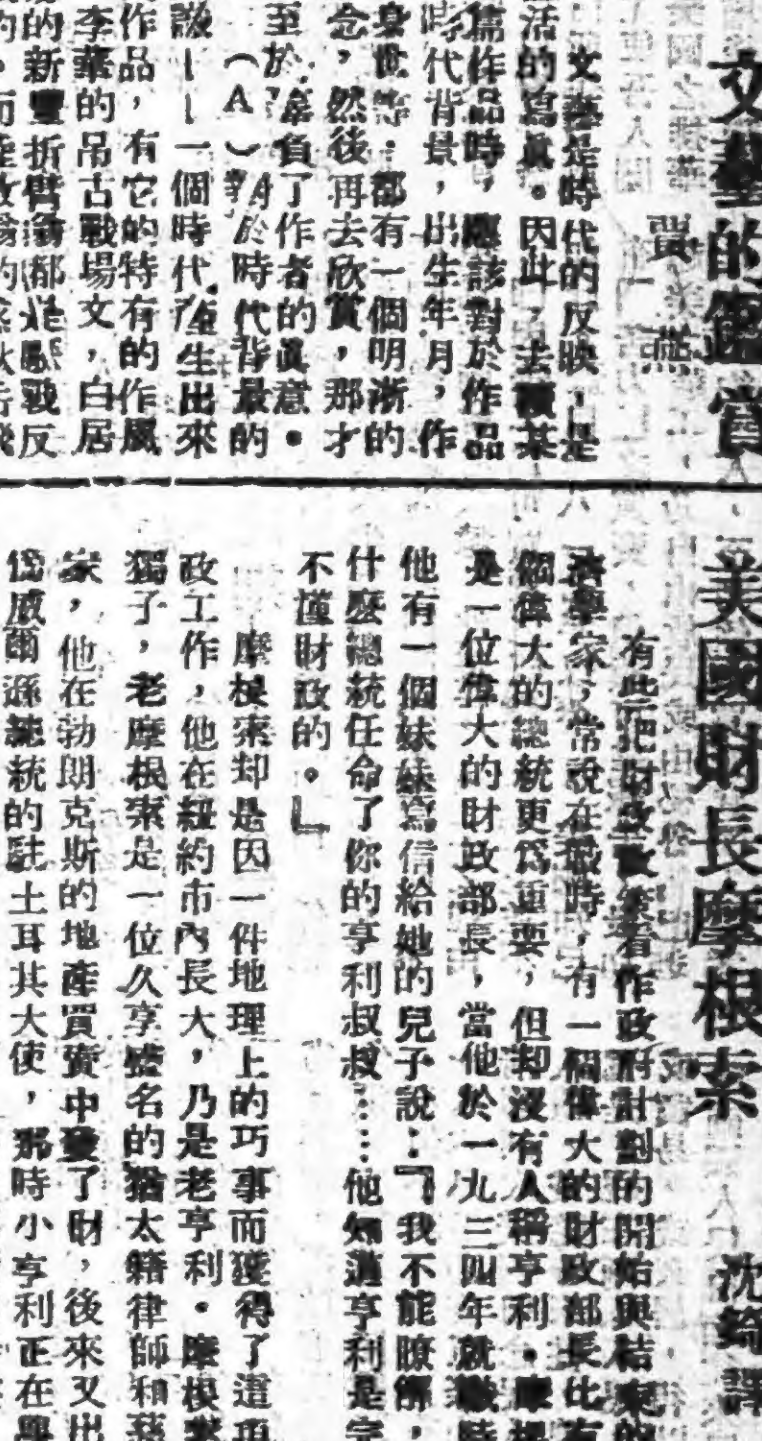 文藝的鑑賞
賈燕
文藝是時代的反映，是
活的寫眞。因此，去讀某
篇作品時，應該對於作品
時代背景，出生年月，作
身世等：都有一個明淅的
念，然後再去欣賞，那才
至於辜負了作者的眞意。
（A）對於時代背景的
識——一個時代產生出來
作品，有它的特有的作風
李華的吊古戰場文，白居
的新豐折臂翁都是厭戰反
美國財長摩根索
沈錡譯
有些把財政政策看作政府計劃的開始與結束的
濟學家，常說在戰時，有一個偉大的財政部長比有
個偉大的總統更爲重要，但却沒有人稱亨利。摩根
是一位偉大的財政部長，當他於一九三四年就職時
他有一個妹妹寫信給她的兒子說：『我不能瞭解，
什麼總統任命了你的亨利叔叔……他知道亨利是完
不懂財政的。』
摩根索却是因一件地理上的巧事而獲得了這項
政工作，他在紐約市內長大，乃是老亨利。摩根索
獨子，老摩根索是一位久享盛名的猶太籍律師和慈
家，他在勃朗克斯的地產買賣中發了財，後來又出
爲威爾遜總統的駐土耳其大使，那時小亨利正在學